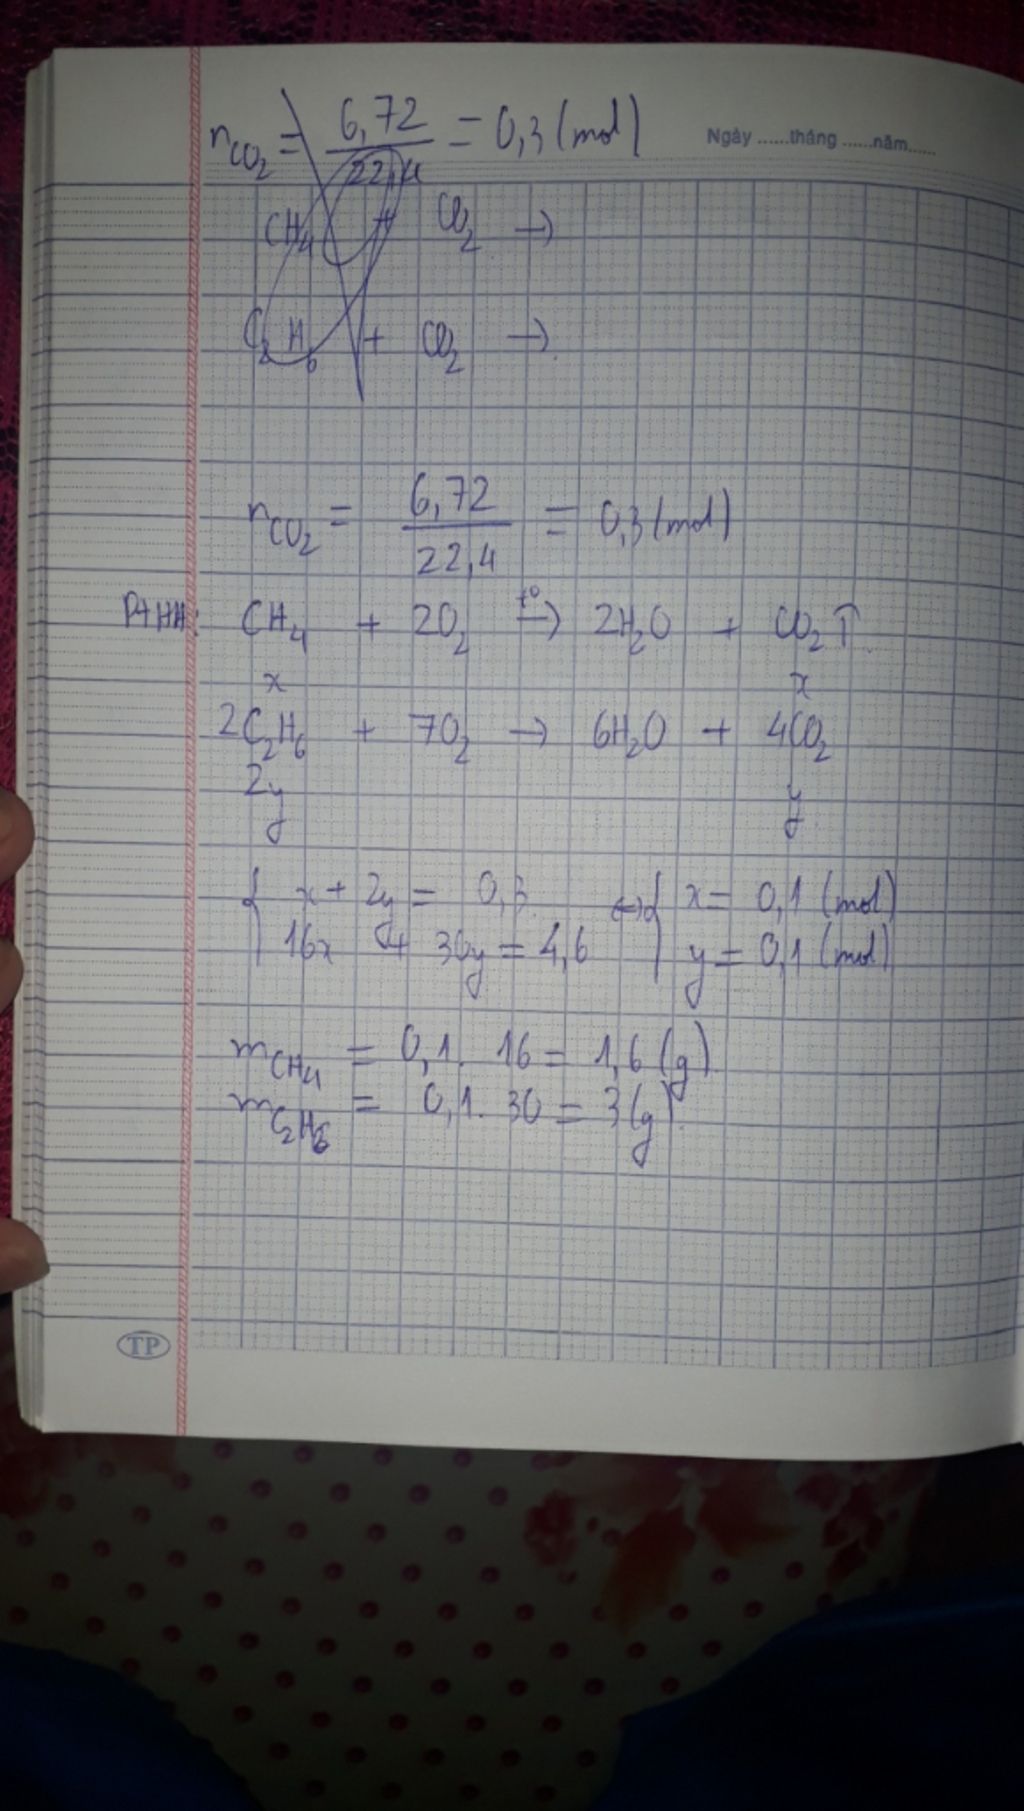 nCO2 = 6,72 / 22,4 = 0,3 (mol)
Ngày ......tháng ......năm......
CH4 + CO2 →
C2H6 + CO2 →
nCO2 = 6,72 / 22,4 = 0,3 (mol)
PTHH: CH4 + 2O2 t°→ 2H2O + CO2 ↑
x x
2C2H6 + 7O2 → 6H2O + 4CO2
2y y
y
{ x + 2y = 0,3 ↔ { x = 0,1 (mol)
16x + 30y = 4,6 y = 0,1 (mol)
mCH4 = 0,1. 16 = 1,6 (g)
mC2H6 = 0,1. 30 = 3 (g)
TP